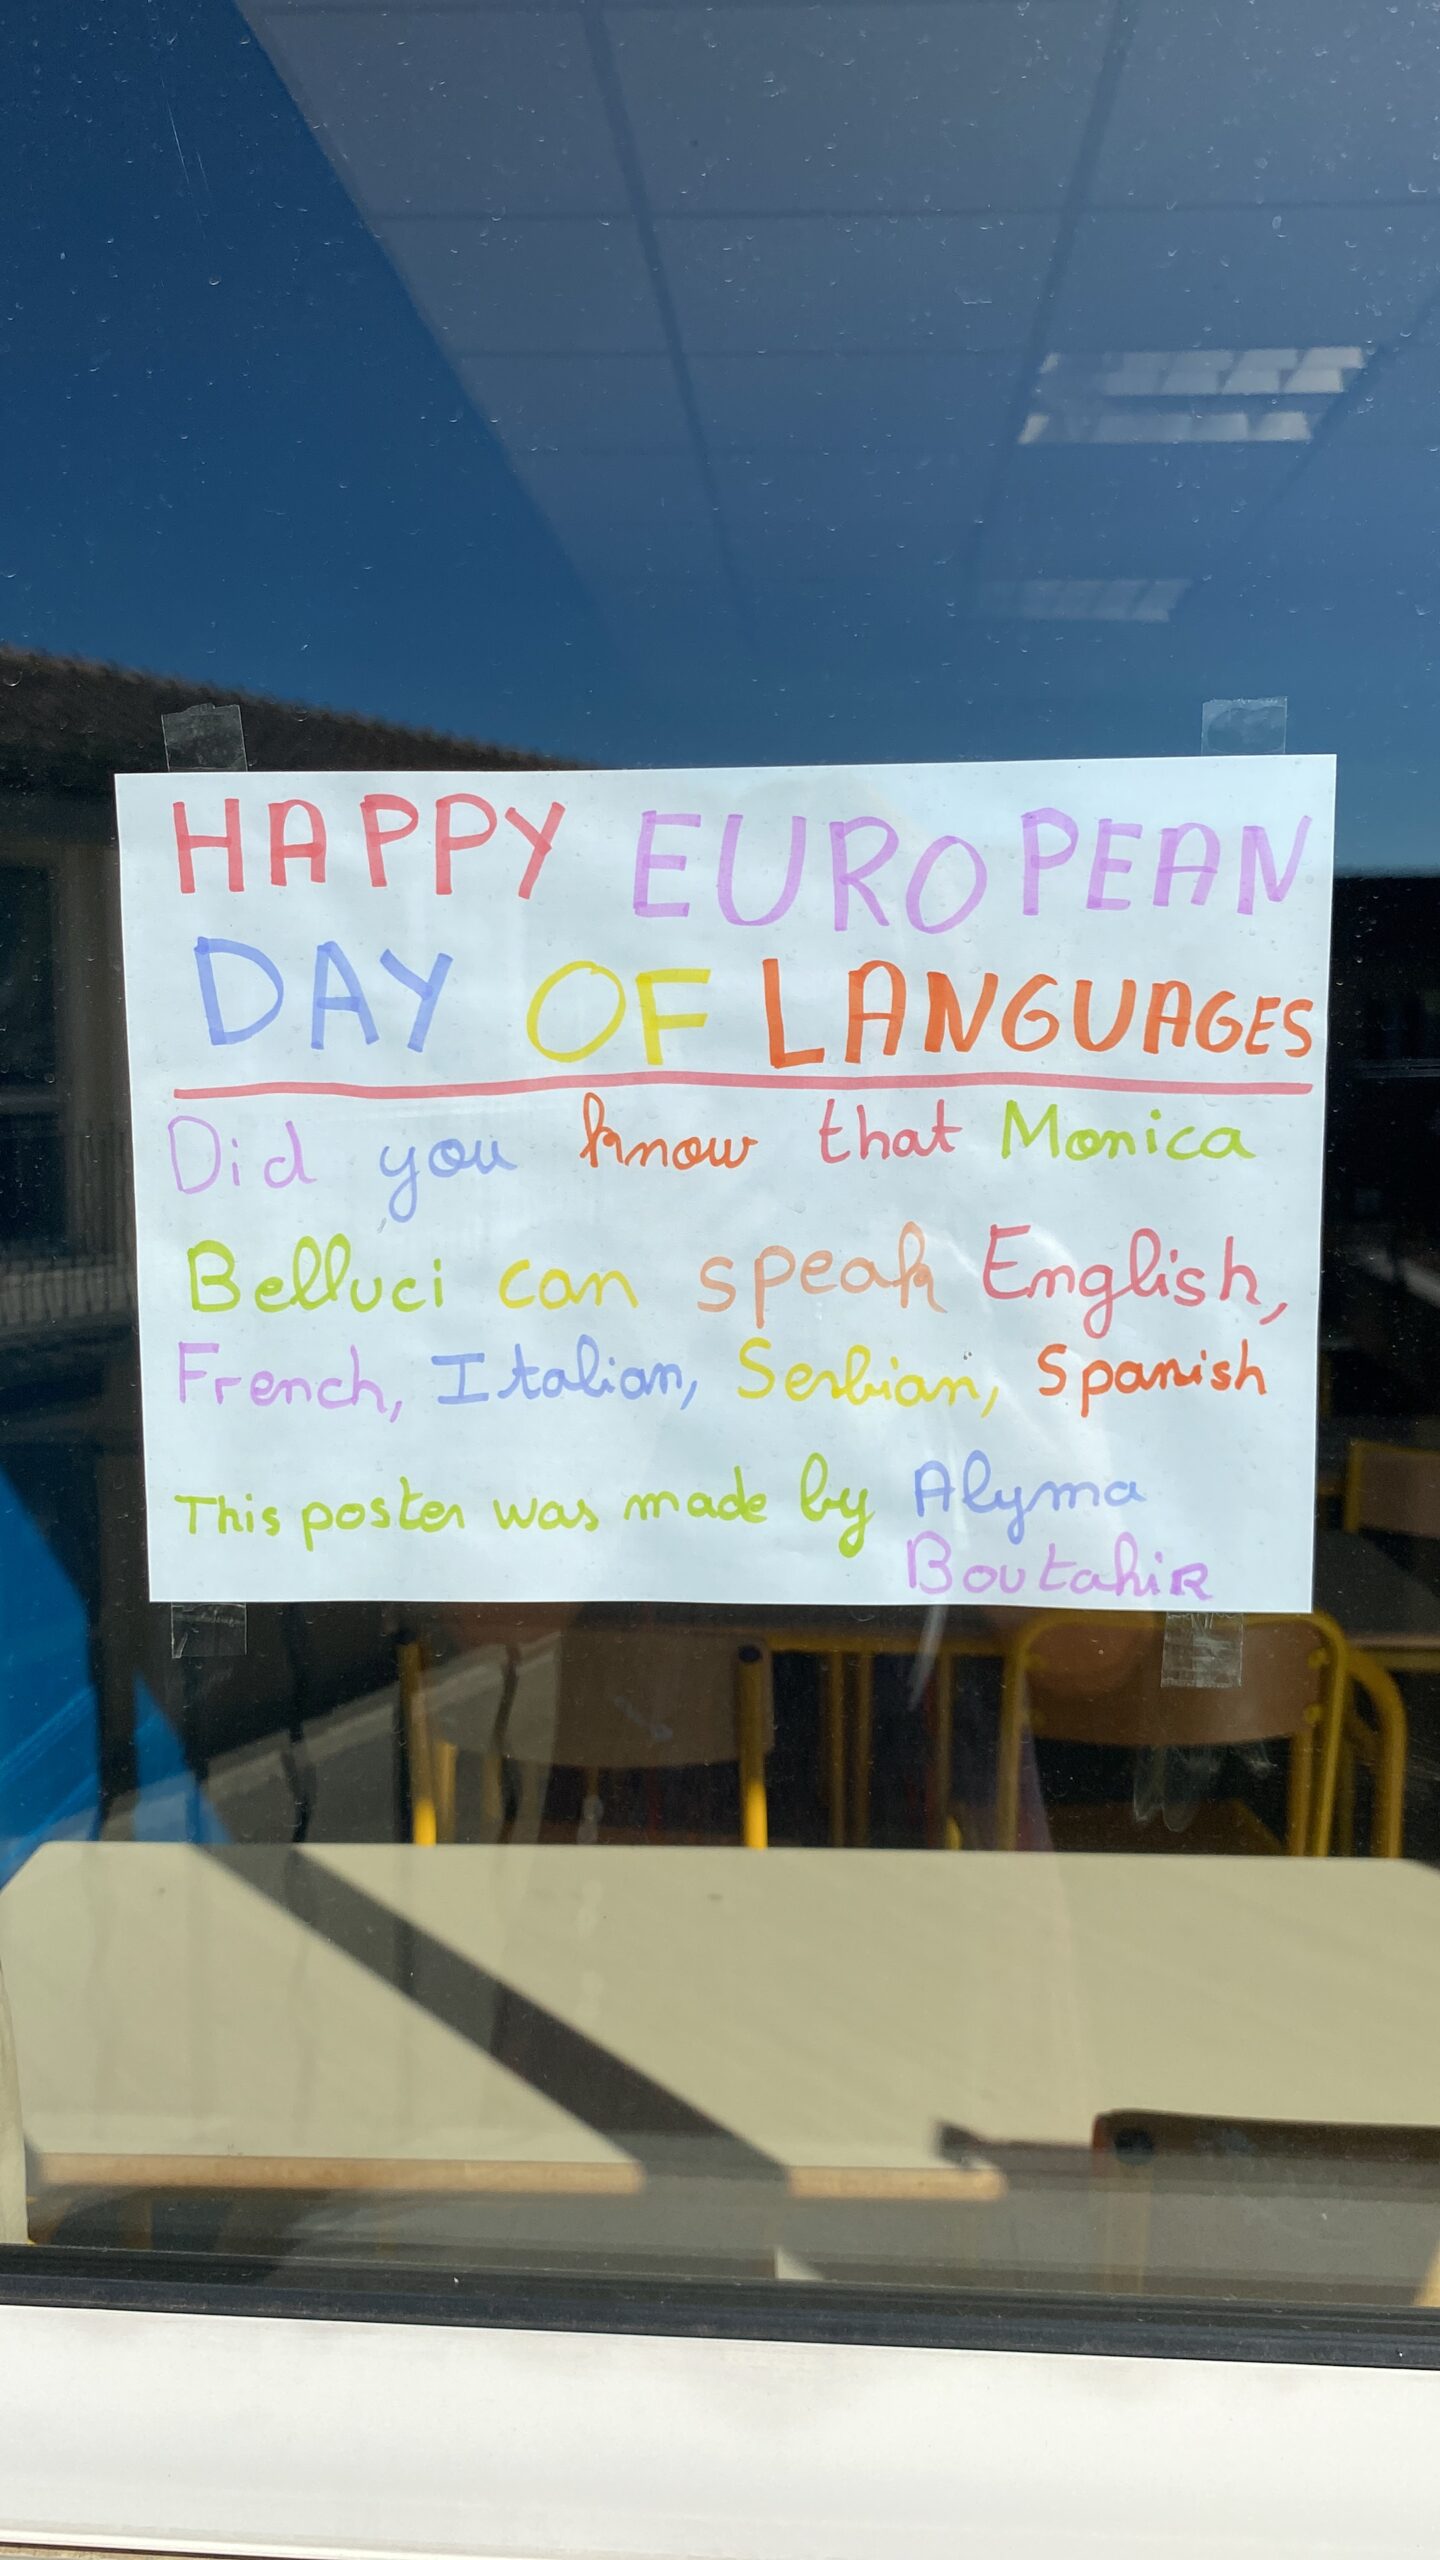 HAPPY EUROPEAN
DAY OF LANGUAGES
Did you know that Monica
Belluci can speak English,
French, Italian, Serbian, Spanish
This poster was made by Alyma
Boutahir